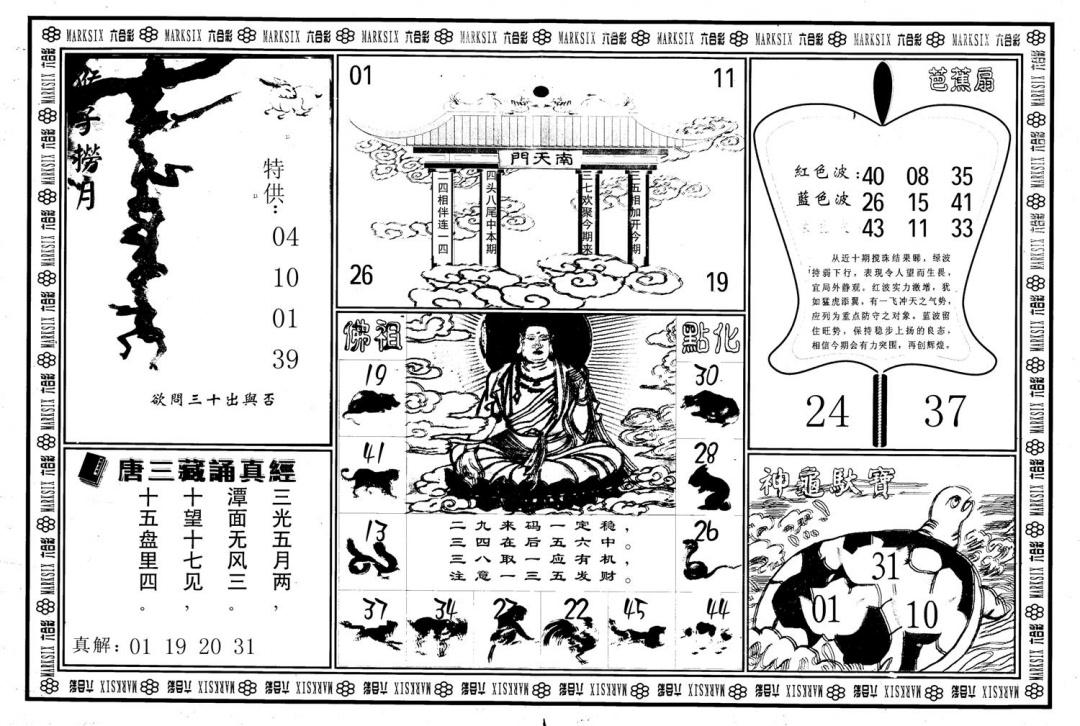 MARKSIX 六合彩 MARKSIX 六合彩 MARKSIX 六合彩 MARKSIX 六合彩 MARKSIX 六合彩 MARKSIX 六合彩 MARKSIX 六合彩 MARKSIX 六合彩 MARKSIX 六合彩 MARKSIX 六合彩
猴子撈月
特供：
04
10
01
39
欲問三十出與否
01
11
南天門
二四相伴连一四
四头八尾中本期
三七欢聚今期来
三五相加开今期
26
19
芭蕉扇
紅色波：40 08 35
藍色波 26 15 41
43 11 33
从近十期搅珠结果睇，绿波
持弱下行，表现令人望而生畏，
宜局外静观。红波实力激增，犹
如猛虎添翼，有一飞冲天之气势，
应列为重点防守之对象。蓝波留
住旺势，保持稳步上扬的良态，
相信今期会有力突围，再创辉煌。
24
37
唐三藏誦真經
三光五月两，
潭面无风三。
十望十七见，
十五盘里四。
真解：01 19 20 31
佛祖
點化
19
30
41
28
13
26
二九来码一定稳，
三四在后五六中。
三八取一应有机，
注意一三五发财。
37
34
23
22
45
44
神龜馱寶
31
01
10
MARKSIX 六合彩 MARKSIX 六合彩 MARKSIX 六合彩 MARKSIX 六合彩 MARKSIX 六合彩 MARKSIX 六合彩 MARKSIX 六合彩 MARKSIX 六合彩 MARKSIX 六合彩 MARKSIX 六合彩